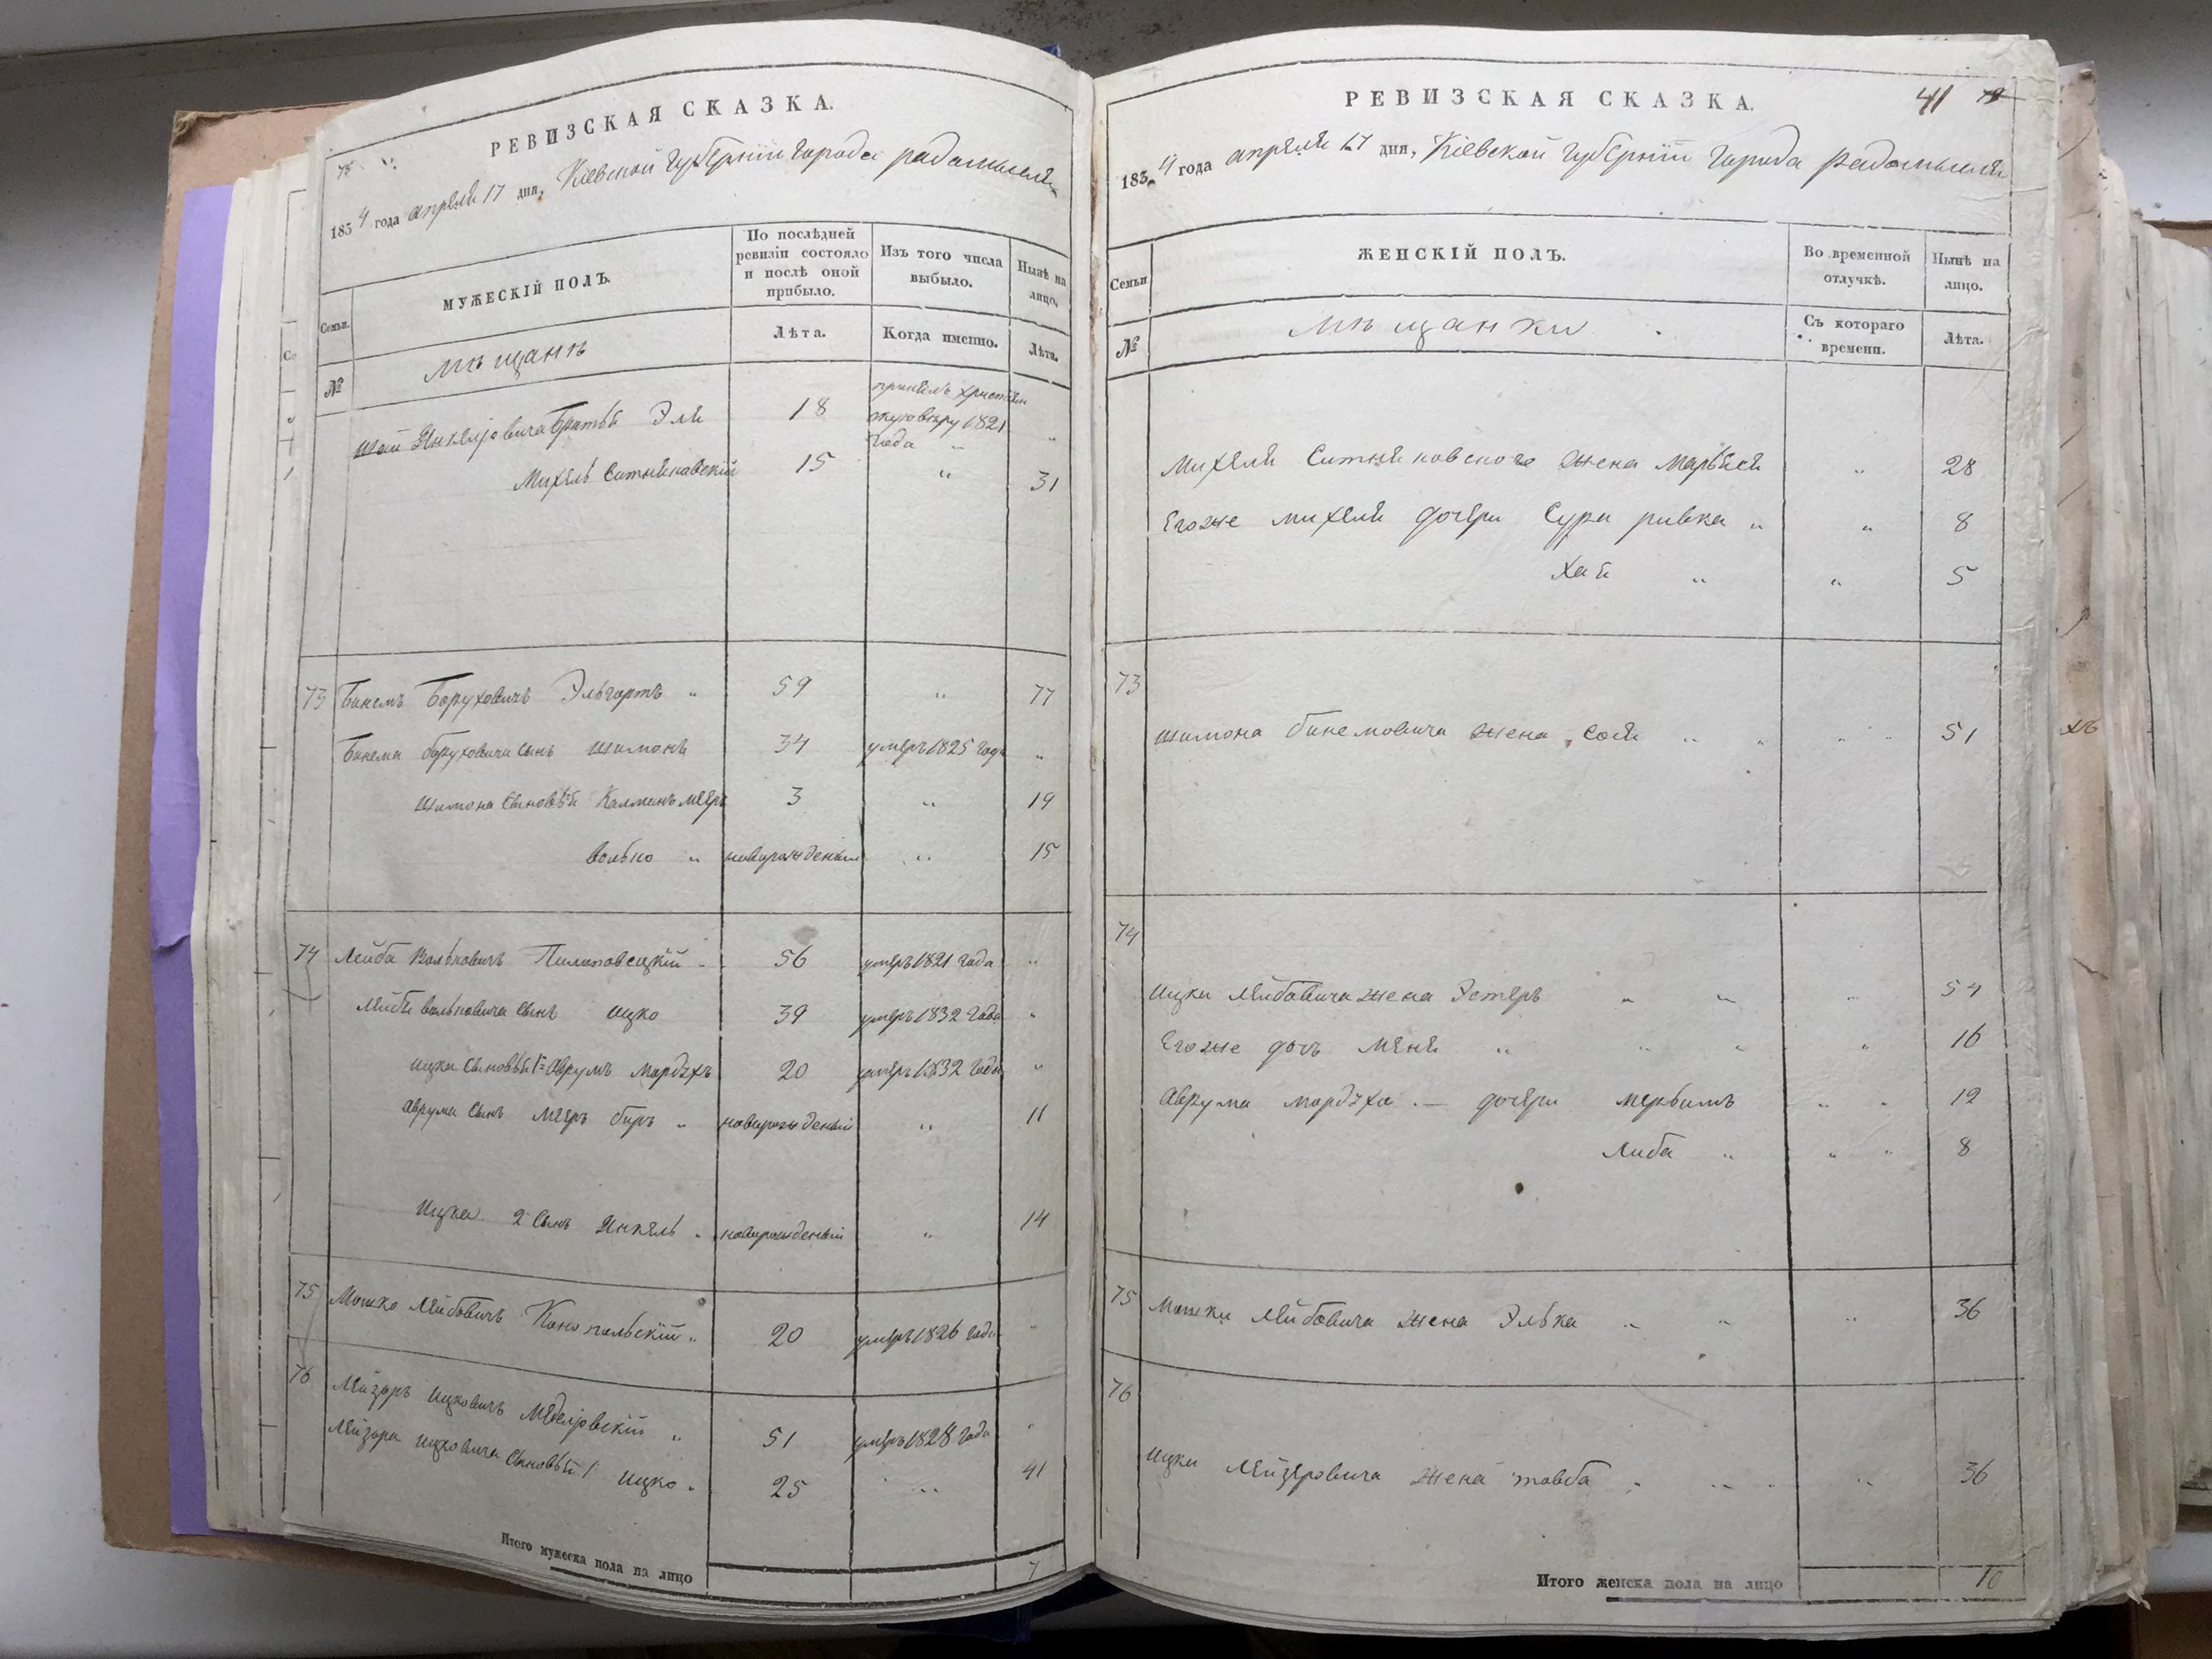 РЕВИЗСКАЯ СКАЗКА.
1834 года апреля 17 дня, Кіевской губерніи города радомысля
Семьи.
МУЖЕСКІЙ ПОЛЪ.
По послѣдней ревизіи состояло и послѣ оной прибыло.
Изъ того числа выбыло.
Нынѣ на лицо.
№
мѣщанъ
Лѣта.
Когда именно.
Лѣта.
Шаи Янкелиовича братья Эля 18 принялъ християнскую веру 1821 года "
Михель Ситняковский 15 " 31
73 Бинемъ Боруховичъ Эльгортъ " 59 " 77
Бинема боруховича сынъ шимонъ 34 умеръ 1825 года "
Шимона сыновья Калманъ мееръ 3 " 19
волько " новорожденый " 15
74 Лейба Волковичъ 56 умеръ 1821 года "
Лейбы вольковича сынъ ицко 39 умеръ 1832 года "
ицка сыновья 1й Аврумъ мордухъ 20 умеръ 1832 года "
аврума сынъ мееръ беръ " новорожденый " 11
Ицка 2 сынъ Янкель " новорожденый " 14
75 Мошко Лейбовичъ Конопельскій " 20 умеръ 1826 года "
76 Лейзоръ Ицковичъ " 51 умеръ 1828 года "
Лейзора ицковича сыновья 1 ицко " 25 " 41
Итого мужеска пола на лицо 7
РЕВИЗСКАЯ СКАЗКА. 41
1834 года апреля 17 дня, Кіевской губерніи города радомысля
Семьи
ЖЕНСКІЙ ПОЛЪ.
Во временной отлучкѣ.
Нынѣ на лицо.
№
мѣщанки
Съ котораго времени.
Лѣта.
Михеля Ситняковского жена Марьяся " 28
Егоже михеля дочери Сура ривка " " 8
Хая " " 5
73
шимона бинемовича жена Сося " " 51
74
Ицки Лейбовича жена Эстеръ " " 54
Егоже дочь Меня " " 16
Аврума мордуха — дочери " 12
Либа " " 8
75 Мошки Лейбовича жена Элька " " 36
76
Ицки Лейзеровича жена товба " " 36
Итого женска пола на лицо 10